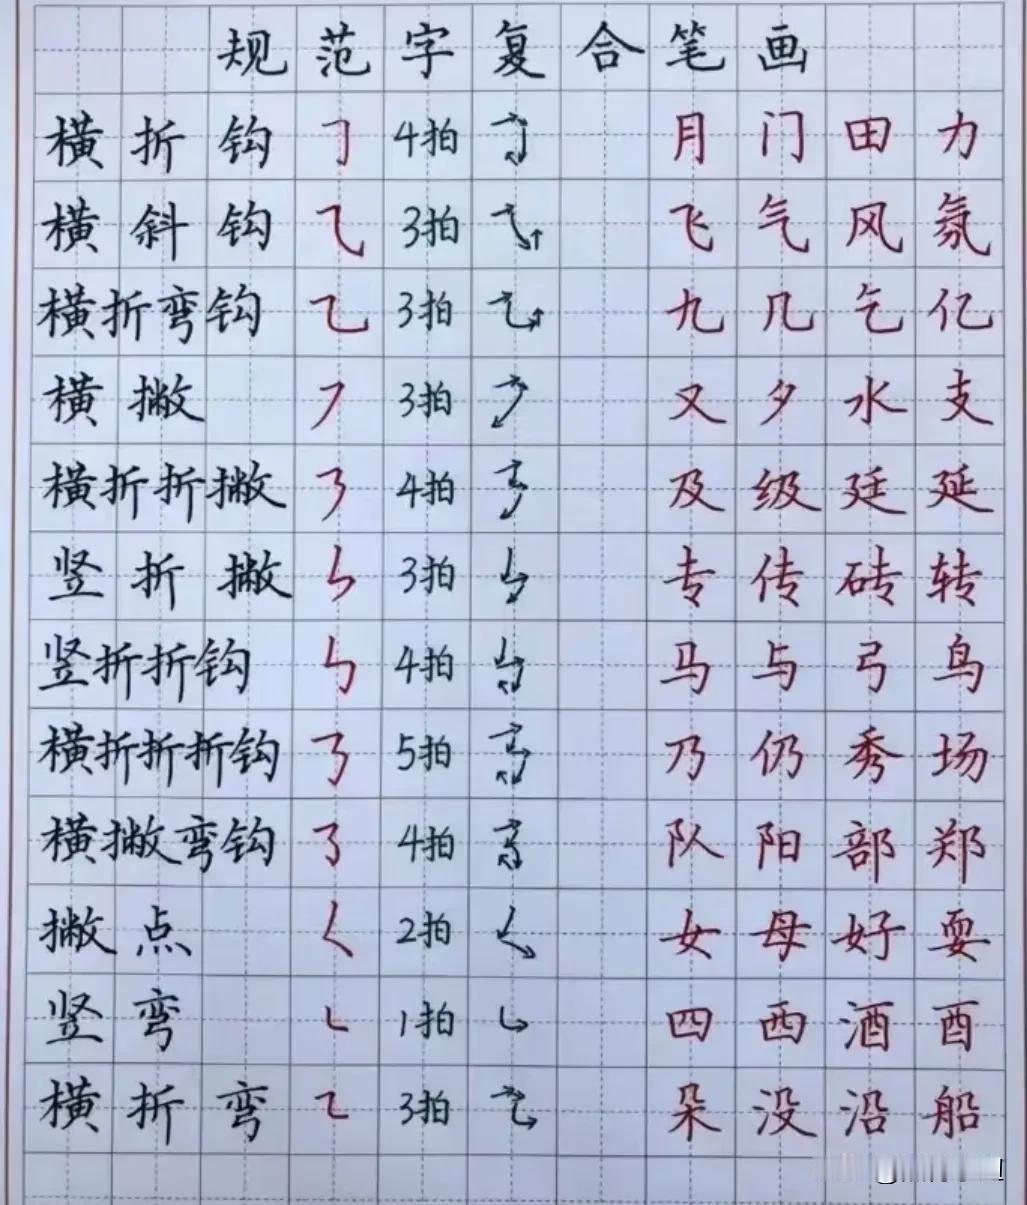 规范字复合笔画
横折钩 ㇆ 4拍 月门田力
横斜钩 ⺄ 3拍 飞气风氛
横折弯钩 ㇈ 3拍 九几乞亿
横撇 ㇇ 3拍 又夕水支
横折折撇 ㇋ 4拍 及级廷延
竖折撇 ㇞ 3拍 专传砖转
竖折折钩 ㇉ 4拍 马与弓鸟
横折折折钩 ㇡ 5拍 乃仍秀场
横撇弯钩 ㇌ 4拍 队阳部郑
撇点 ㇛ 2拍 女母好耍
竖弯 ㇄ 1拍 四西酒酉
横折弯 ㇍ 3拍 朵没沿船